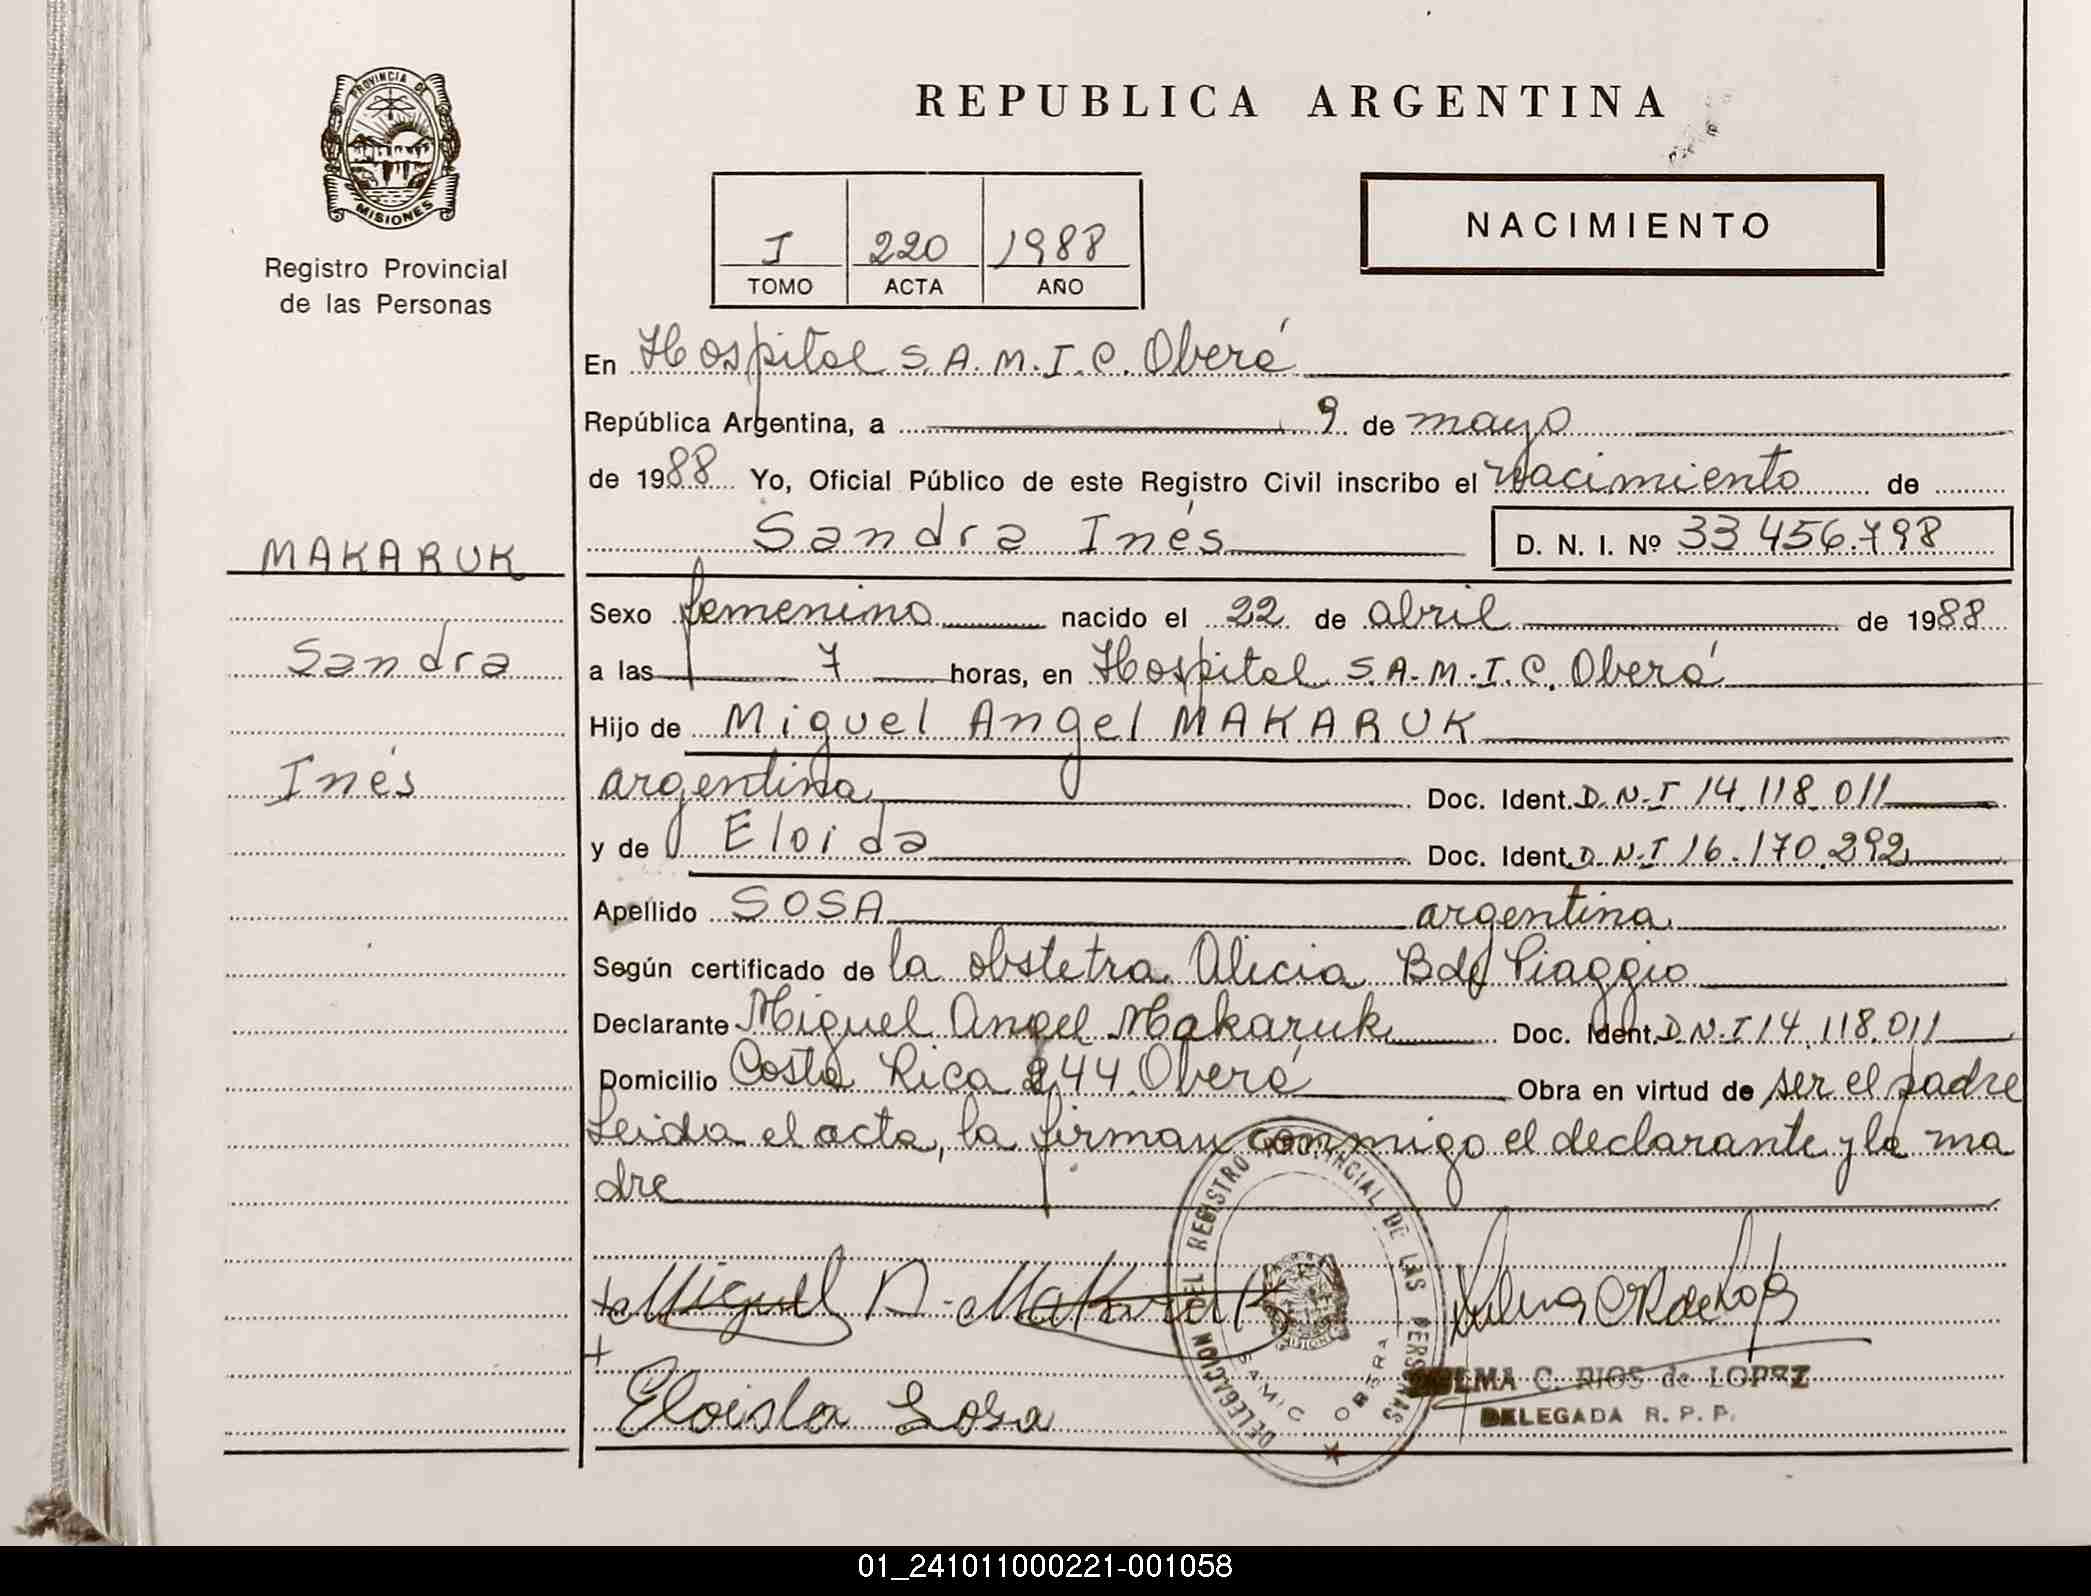 PROVINCIA DE
MISIONES
Registro Provincial
de las Personas
MAKARUK
Sandra
Inés
REPUBLICA ARGENTINA
I 220 1988
TOMO ACTA AÑO
NACIMIENTO
En Hospital S.A.M.I.C. Oberá
República Argentina, a 9 de mayo
de 1988 Yo, Oficial Público de este Registro Civil inscribo el nacimiento de
Sandra Inés D. N. I. Nº 33.456.798
Sexo femenino nacido el 22 de abril de 1988
a las 7 horas, en Hospital S.A.M.I.C. Oberá
Hijo de Miguel Angel MAKARUK
argentina Doc. Ident. D.N.I 14.118.011
y de Eloida Doc. Ident. D.N.I 16.170.292
Apellido SOSA argentina
Según certificado de la obstetra Alicia B de Piaggio
Declarante Miguel Angel Makaruk Doc. Ident. D.N.I 14.118.011
Domicilio Costa Rica 244 Oberá Obra en virtud de ser el padre
Leida el acta, la firman conmigo el declarante y la ma
dre
DELEGACION DEL REGISTRO PROVINCIAL DE LAS PERSONAS
SAMIC OBERA
Miguel A. Makaruk
Eloisla Sosa
C. RIOS de LOPEZ
DELEGADA R. P. P.
01_241011000221-001058